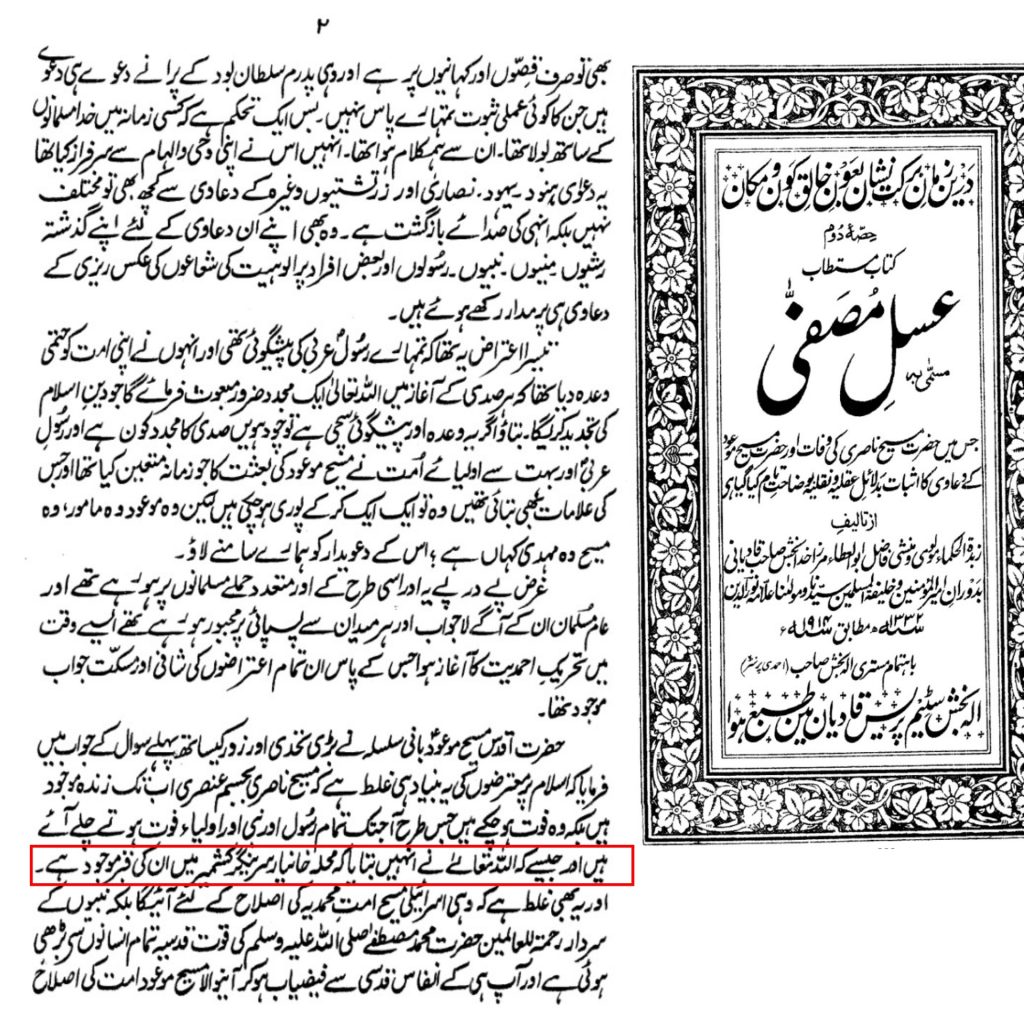 ۲
بھی تو صرف قصّوں اور کہانیوں پر ہے اور وہی پدرم سلطان بود کے پرانے دعوے ہی دعوے
ہیں جن کا کوئی عملی ثبوت تمہارے پاس نہیں۔ بس ایک تحکم ہے کہ کسی زمانہ میں خدا مسلمانوں
کے ساتھ بولا تھا۔ ان سے ہمکلام ہوا تھا۔ انہیں اس نے اپنی وحی و الہام سے سرفراز کیا تھا
یہ دعوٰی ہنود۔ یہود۔ نصاریٰ اور زرتشتیوں وغیرہ کے دعاوی سے کچھ بھی تو مختلف
نہیں بلکہ انہی کی صدائے بازگشت ہے۔ وہ بھی اپنے ان دعاوی کے لئے اپنے گذشتہ
رشیوں منیوں۔ نبیوں۔ رسولوں اور بعض افراد پر الوہیت کی شعاعوں کی عکس ریزی کے
دعاوی ہی پر مدار رکھے ہوئے ہیں۔
تیسرا اعتراض یہ تھا کہ تمہارے رسُول عربی کی پیشگوئی تھی اور انہوں نے اپنی امت کو حتمی
وعدہ دیا تھا کہ ہر صدی کے آغاز میں اللہ تعالیٰ ایک مجدد ضرور مبعوث فرمائے گا جو دین اسلام
کی تجدید کریگا۔ بتاؤ اگر یہ وعدہ اور پیشگوئی سچی ہے تو چودہویں صدی کا مجدد کون ہے اور رسُول
عربیؐ اور بہت سے اولیائے اُمت نے مسیح موعود کی بعثت کا جو زمانہ متعین کیا تھا اور جس
کی علامات بھی بتائی تھیں وہ تو ایک ایک کر کے پوری ہو چکی ہیں لیکن وہ موعود وہ مامور، وہ
مسیح وہ مہدی کہاں ہے؟ اس کے دعویدار کو ہمارے سامنے لاؤ۔
غرض پے در پے یہ اور اسی طرح کے اور متعدد حملے مسلمانوں پر ہو رہے تھے اور
عام مُسلمان ان کے آگے لاجواب اور ہر میدان سے پسپائی پر مجبور ہو رہے تھے ایسے وقت
میں تحریکِ احمدیت کا آغاز ہوا جس کے پاس ان تمام اعتراضوں کی شافی اور مسکت جواب
موجود تھا۔
حضرت اقدس مسیح موعودؑ بانی سلسلہ نے بڑی تحدی اور زور کیساتھ پہلے سوال کے جواب میں
فرمایا کہ اسلام پر معترضوں کی یہ بنیاد ہی غلط ہے کہ مسیح ناصری بجسم عنصری اب تک زندہ موجود
ہیں بلکہ وہ فوت ہو چکے ہیں جس طرح آجتک تمام رسُول اور نبی اور اولیاء فوت ہوتے چلے آئے
ہیں اور جیسے کہ اللہ تعالےٰ نے انہیں بتایا کہ محلہ خانیار سرینگر کشمیر میں ان کی قبر موجود ہے۔
اور یہ بھی غلط ہے کہ وہی اسرائیلی مسیح امتِ محمدیہ کی اصلاح کے لئے آئیگا بلکہ نبیوں کے
سردار رحمۃ للعالمین حضرت محمد مصطفےٰ صلی اللہ علیہ وسلم کی قوت قدسیہ تمام انسانوں سے بڑھی
ہوئی ہے اور آپ ہی کے انفاس قدسی سے فیضیاب ہو کر آنیوالا مسیح موعود امت کی اصلاح
درین زمان برکت نشان بعون خالق کون و مکان
حصۂ دوم
کتاب مستطاب
مسمّٰی بہ
عسلِ مُصَفّٰی
جس میں حضرت مسیح ناصری کی وفات اور حضرت مسیح موعود
کے دعاوی کا اثبات بدلائل عقلیہ و نقلیہ بوضاحت تام کیا گیا ہے
از تالیف
زبدۃ الحکماء مولوی و منشی فاضل ابوالعطاء مرزا خدا بخش صاحب قادیانی
بدوران امیر المؤمنین و خلیفۃ المسلمین سیدنا و مولٰنا علامہ نورالدین
۱۳۳۲ھ مطابق ۱۹۱۴ء
باہتمام مستری الہ بخش صاحب (احمدی پرنٹر)
الہ بخش سٹیم پریس قادیان میں طبع ہوا